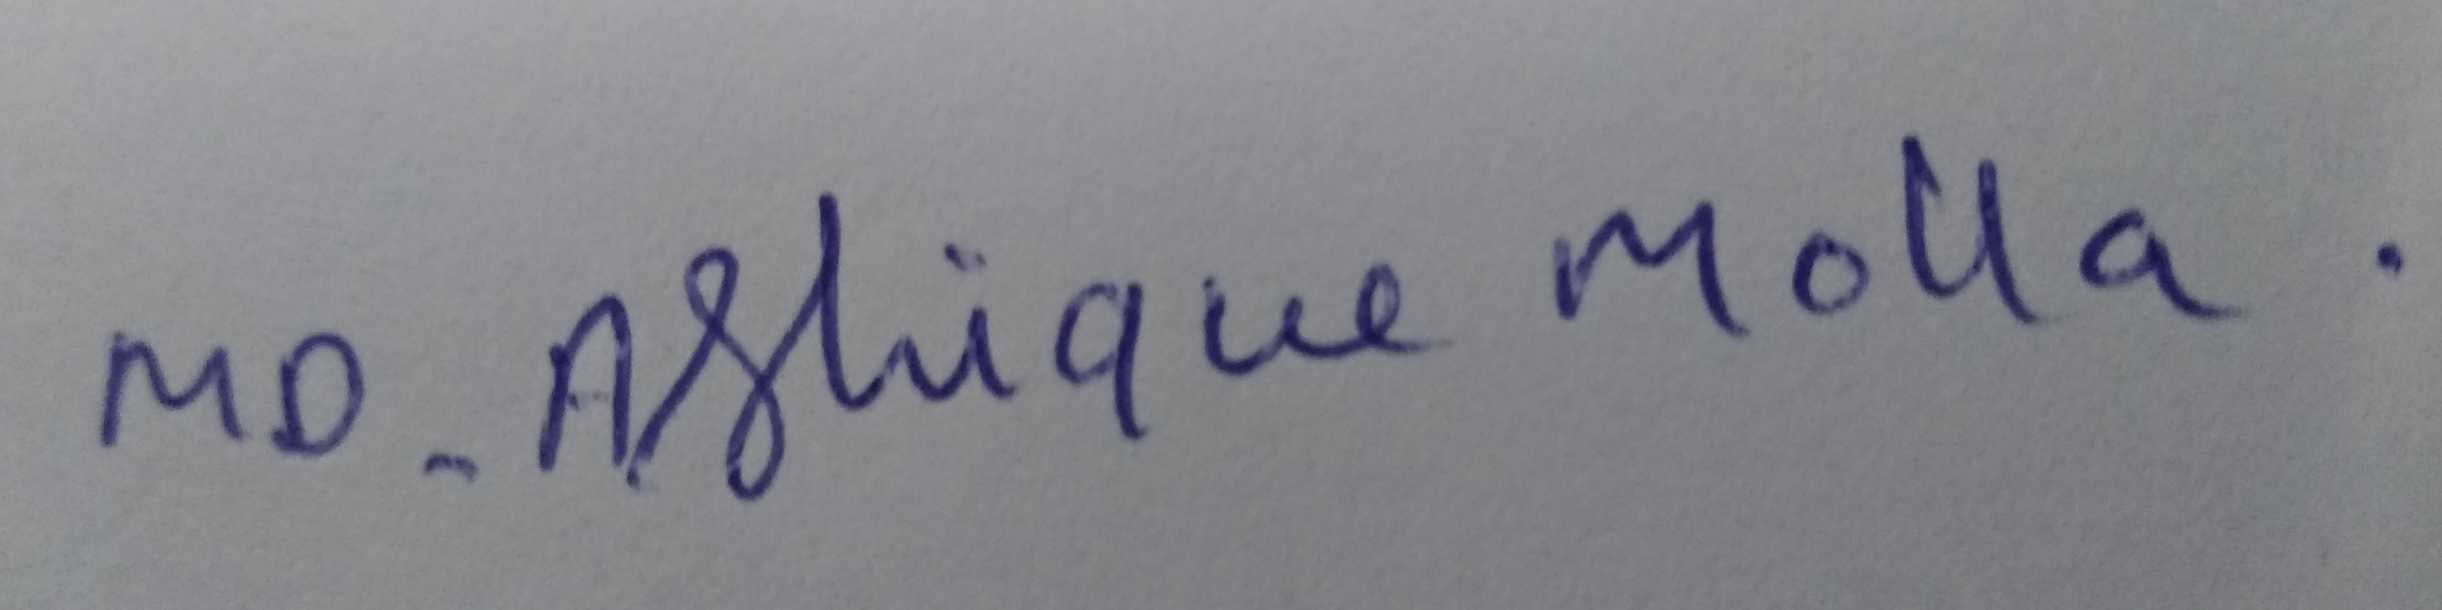 MD. Ashique Molla.